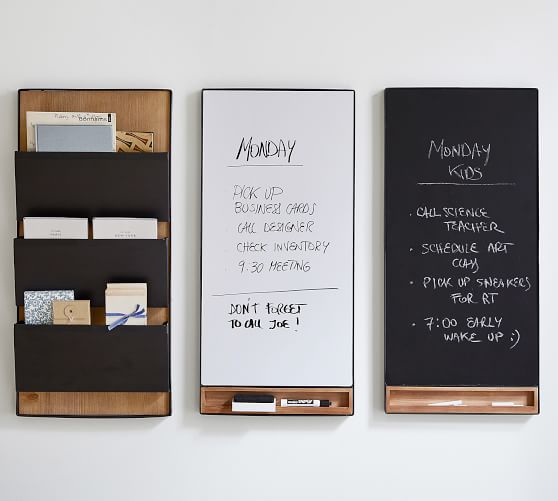 MONDAY
PICK UP
BUSINESS CARDS
CALL DESIGNER
CHECK INVENTORY
9:30 MEETING
DON'T FORGET
TO CALL JOE!
MONDAY
KIDS
· CALL SCIENCE
TEACHER
· SCHEDULE ART
CLASS
· PICK UP SNEAKERS
FOR RT
· 7:00 EARLY
WAKE UP :)